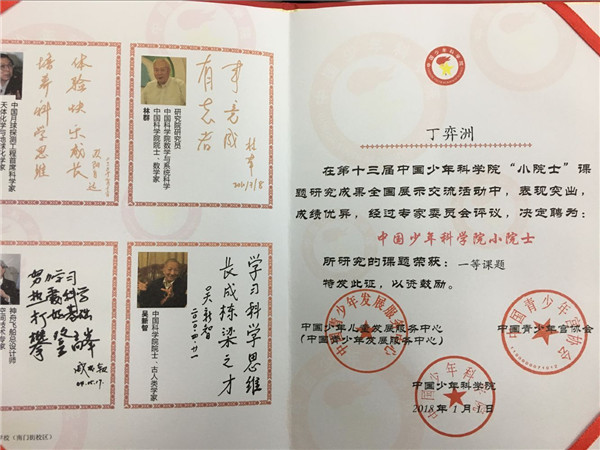 体验快乐成长
培养科学思维
中国月球探测工程首席科学家
天体化学与地球化学家
有志者
事竟成
林群
研究院研究员
中国科学院数学与系统科学
中国科学院院士、数学家
林群
努力学习
热爱科学
打好基础
攀登高峰
戚发轫
神舟飞船总设计师
空间技术专家
学习科学思维
长成栋梁之才
吴新智
二〇〇四.廿一
中国科学院院士、古人类学家
吴新智
学校(南门街校区)
中国少年科学院
丁弈洲
在第十三届中国少年科学院“小院士”课
题研究成果全国展示交流活动中，表现突出，
成绩优异，经过专家委员会评议，决定聘为：
中国少年科学院小院士
所研究的课题荣获：一等课题
特发此证，以资鼓励。
中国少年儿童发展服务中心
(中国青少年发展服务中心)
中国青少年宫协会
中国少年科学院
2018年1月1日